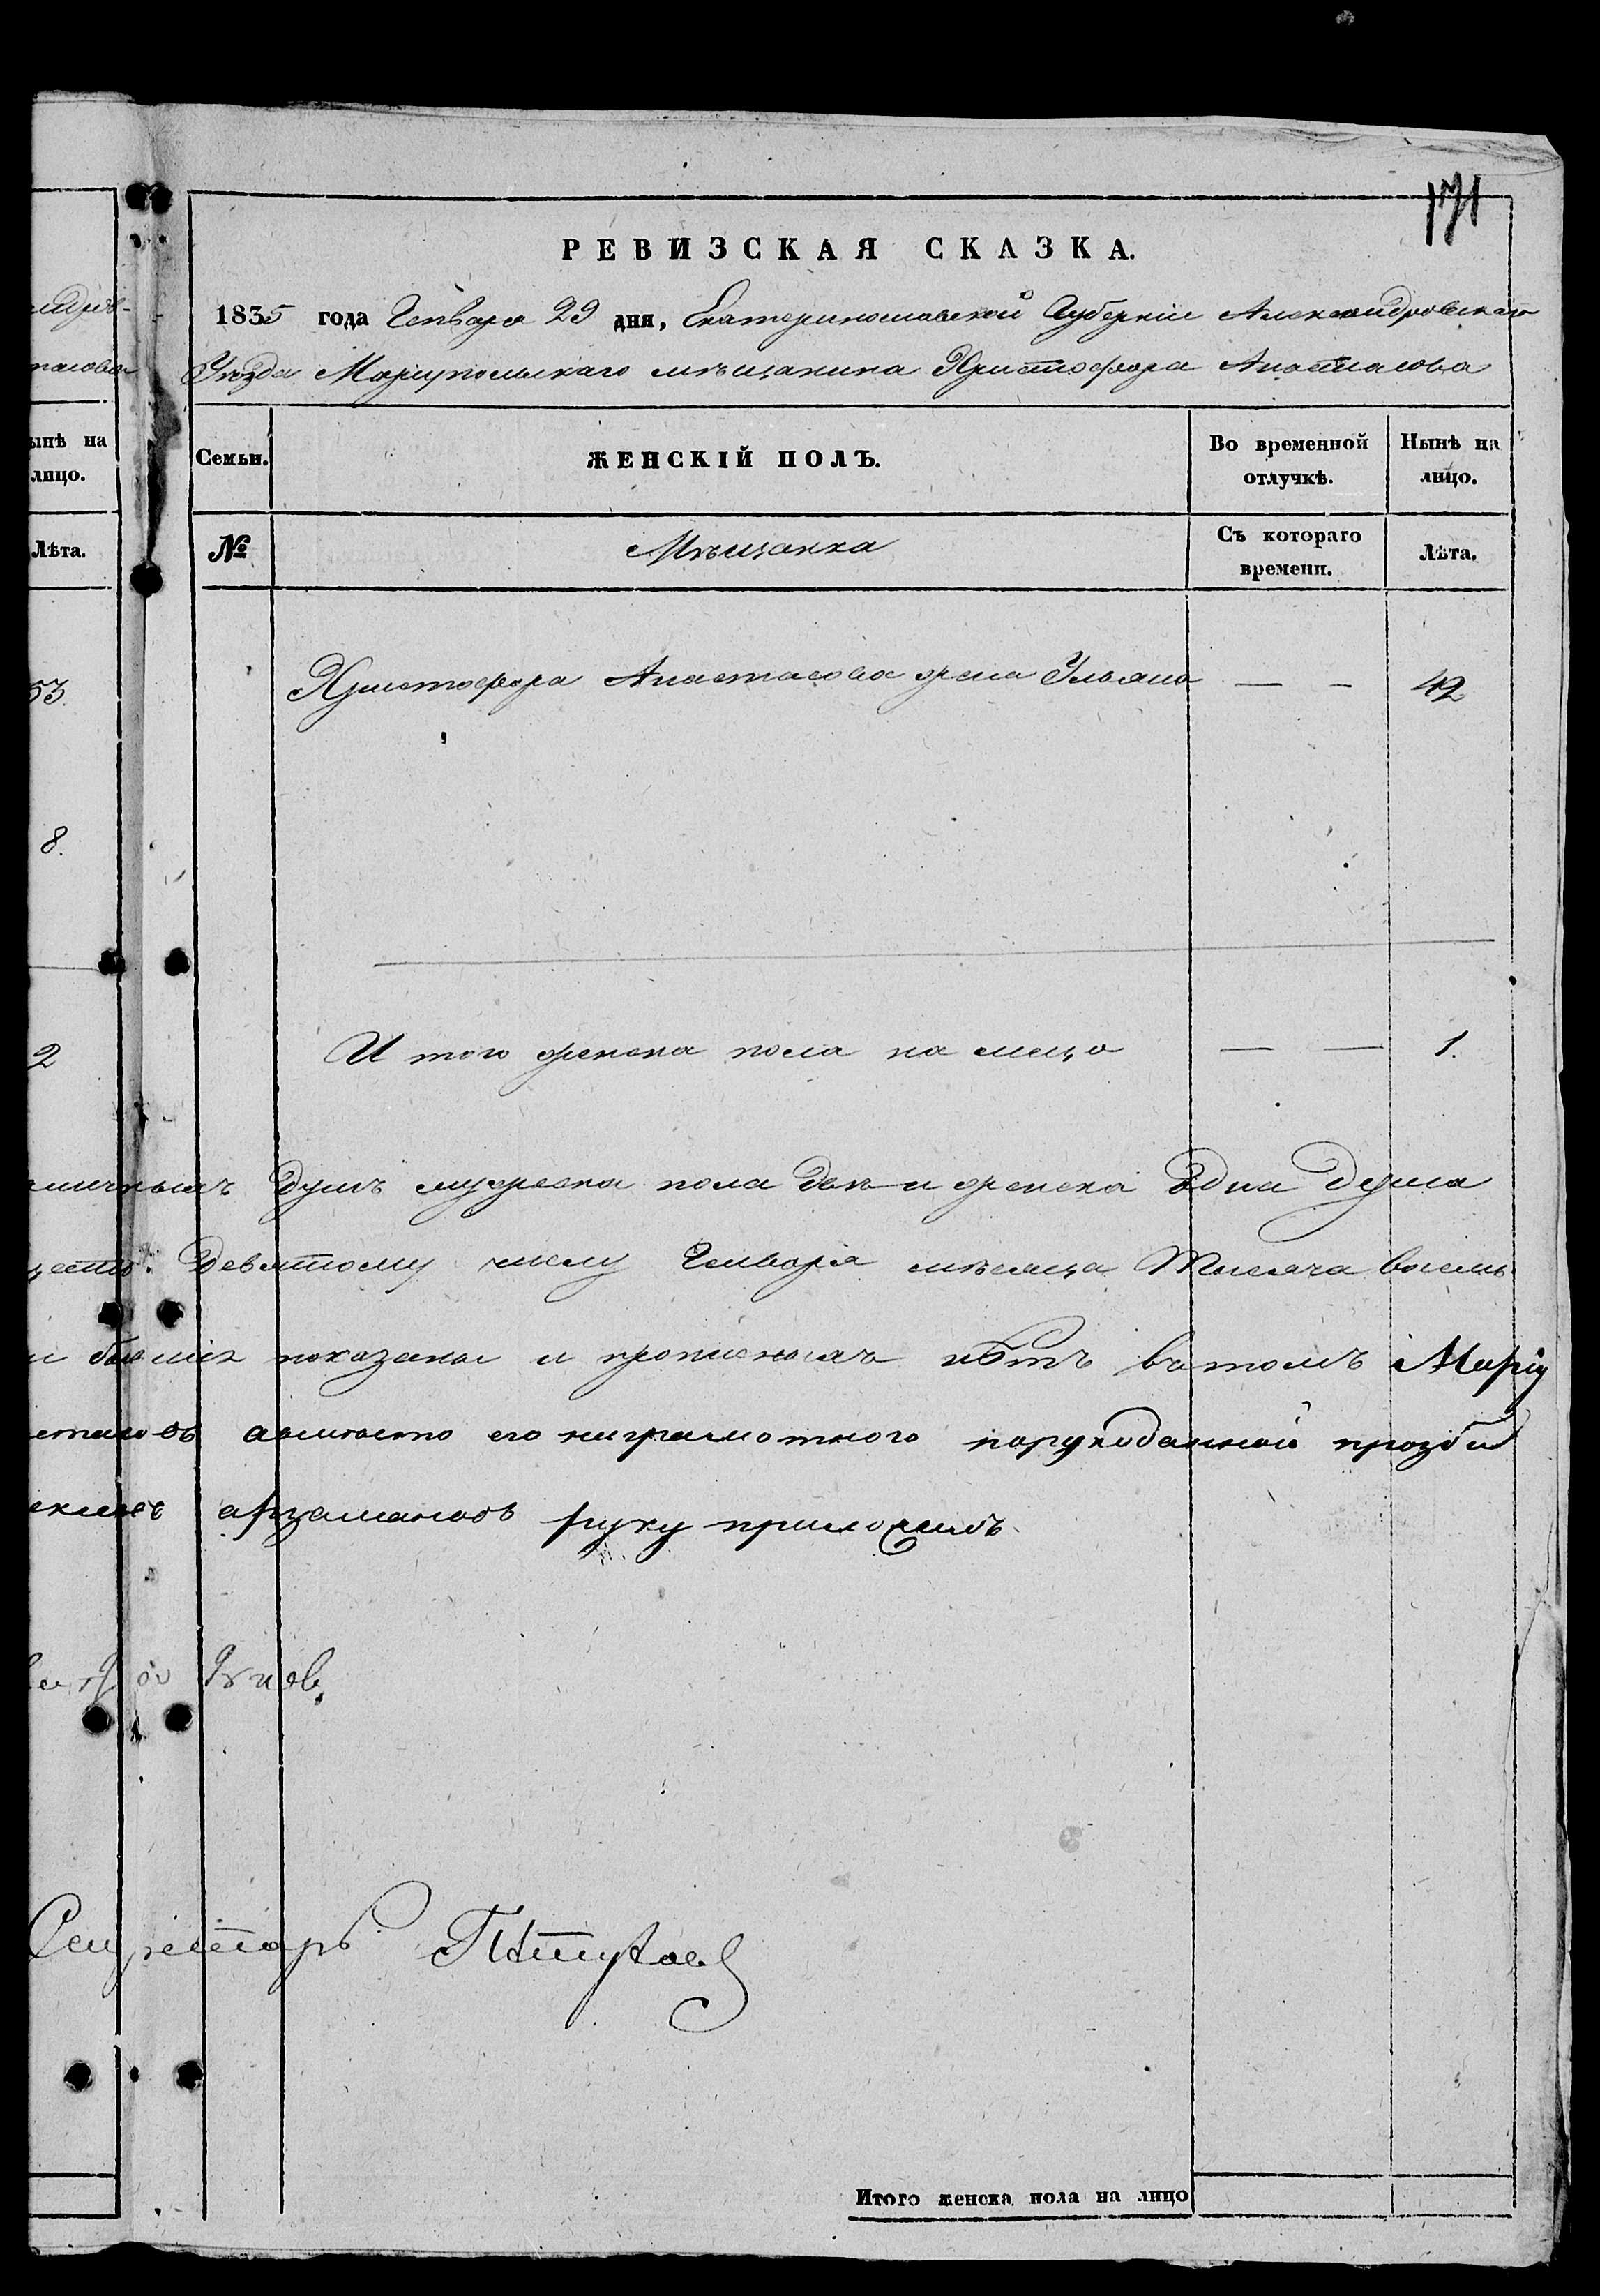 171
РЕВИЗСКАЯ СКАЗКА.
1835 года Генваря 29 дня, Екатеринославской Губерніи Александровскаго
Уѣзда Маріупольскаго мѣщанина Христофора Анастасова
ынѣ на лицо.
Семьи.
ЖЕНСКІЙ ПОЛЪ.
Во временной отлучкѣ.
Нынѣ на лицо.
Лѣта.
№
Мѣщанка
Съ котораго времени.
Лѣта.
53.
Христофора Анастасова жена Ульяна — — 42
8.
2
И того женска пола на лицо — — 1.
душъ мужеска пола две и женска Одна Душа
девятому числу Генваря мѣсяца Тысяча восемь
показаны и прописныхъ нѣтъ въ томъ Маріу
авместо его неграмотного порукоданной прозби
арзамановъ руку приложилъ
Секретарь
Итого женска пола на лицо